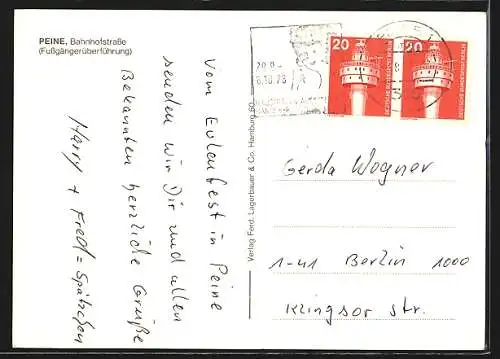 PEINE, Bahnhofstraße
(Fußgängerüberführung)
Vom Eulenfest in Peine
senden wir Dir und allen
Bekannten herzliche Grüße
Harry + Fred = Spätzchen
Verlag Ferd. Lagerbauer & Co. Hamburg 50
20
DEUTSCHE BUNDESPOST BERLIN
20
DEUTSCHE BUNDESPOST BERLIN
Gerda Wagner
1-41 Berlin 1000
Klingsor str.